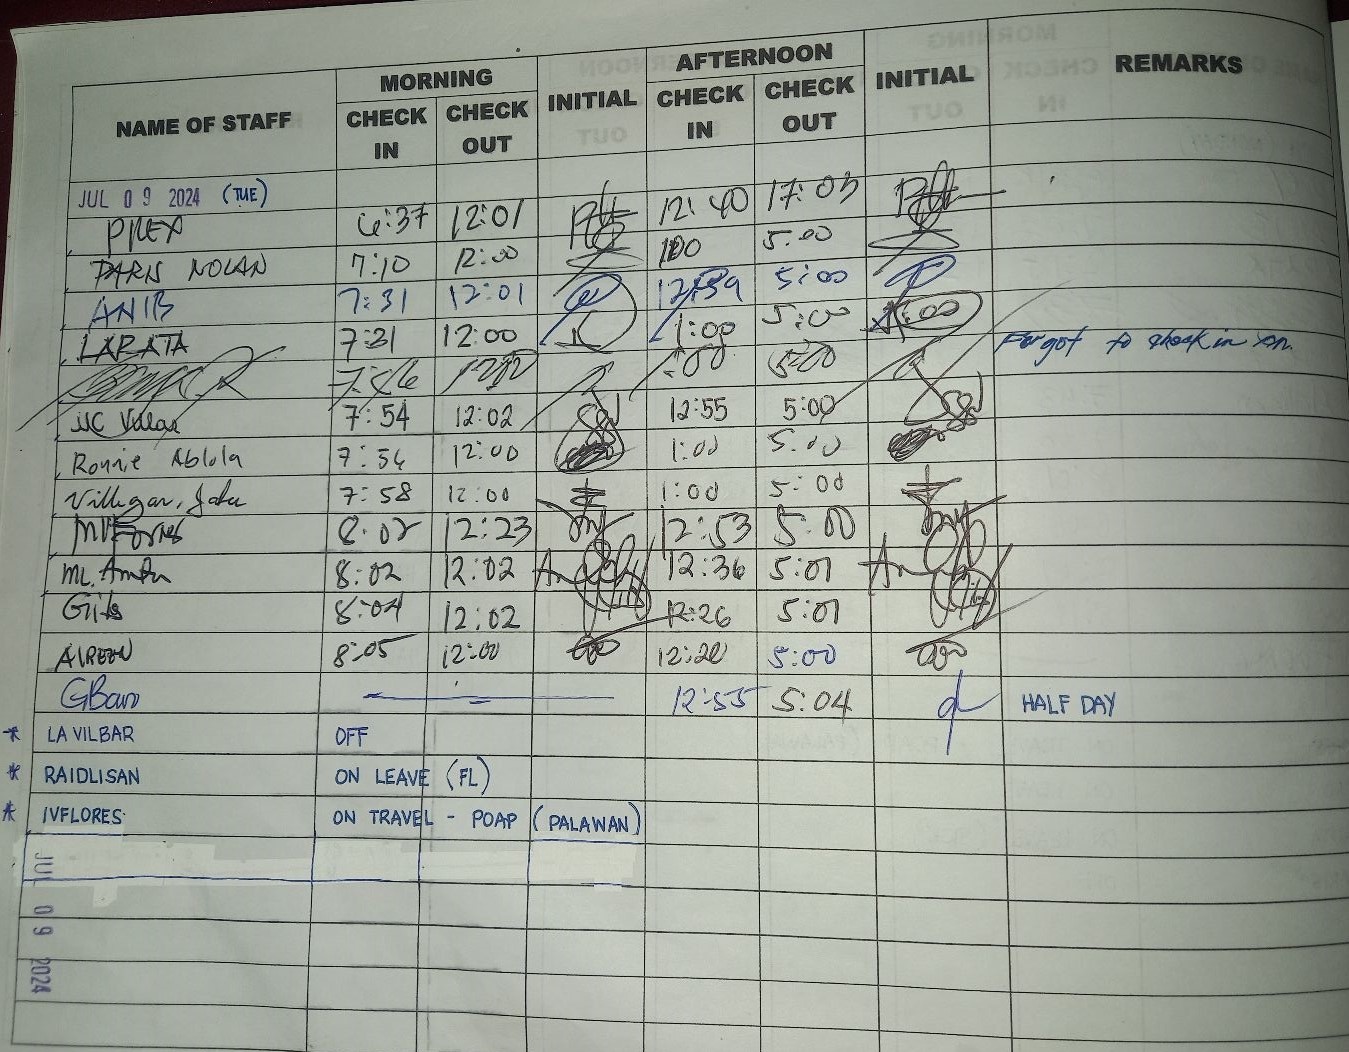 NAME OF STAFF MORNING INITIAL AFTERNOON INITIAL REMARKS
CHECK IN CHECK OUT CHECK IN CHECK OUT
JUL 09 2024 (TUE)
PREX 6:37 12:01 12:40 17:03
PARIS NOLAN 7:10 12:00 100 5:00
ANIB 7:31 12:01 12:59 5:00
LARATA 7:31 12:00 1:00 5:00 1:00 Forgot to check in
:00 5:00
MC Villar 7:54 12:02 12:55 5:00
Ronnie Ablola 7:56 12:00 1:00 5:00
Villegar, 7:58 12:00 1:00 5:00
8:02 12:23 12:53 5:00
ML. 8:02 12:02 12:36 5:01
8:04 12:02 12:26 5:01
AIREEN 8:05 12:00 12:20 5:00
12:55 5:04 HALF DAY
* LA VILBAR OFF
* RAIDLISAN ON LEAVE (FL)
* IVFLORES ON TRAVEL - POAP (PALAWAN)
JUL 09 2024